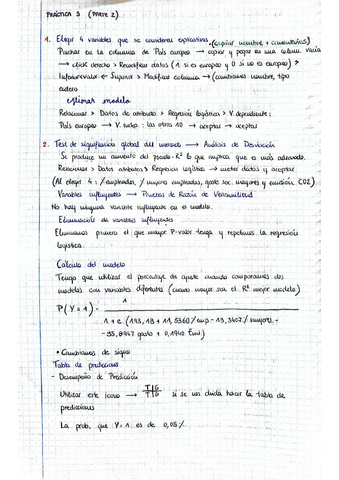 PRÁCTICA 3 (PARTE 2)
1. Elegir 4 variables que se consideren explicativas (copiar nombre + comentarios)
Pinchar en la columna de País europeo → copiar y pegar en una column. vacía
→ click derecho > Recodificar datos (1 si es europeo y 0 si no es europeo) >
Inferiorvalor ← Superior > Modificar columna → (cambiamos nombre, tipo
estimar modelo
Relacionar > Datos de atributo > Regresión logística > V. dependiente:
País europeo → V. indep.: las otras 10 → aceptar → aceptar
2. Test de significación global del modelo → Análisis de Desviación
Se produce un aumento del pseudo-R² lo que implica que es más adecuado.
Relacionar > Datos atributos > Regresión logística → meter datos y aceptar
(Al elegir 4: /empleadas, /mujeres empleadas, gasto soc. mujeres y emisión CO2)
Variables influyentes → Pruebas de Razón de Verosimilitud
No hay ninguna variable influyente en el modelo.
Eliminación de variables influyentes
Eliminamos primero el que mayor P-valor tenga y repetimos la regresión
logística.
Cálculo del modelo
Tengo que utilizar el porcentaje de ajuste cuando comparamos dos
modelos con variables diferentes (cuanto mayor sea el R² mejor modelo)
P(Y=1) = 1
1 + e (193,13 + 11,5360 /emp - 13,3407 /mujeres -
- 35,8947 gasto + 0,1940 Emi)
• Cambiamos de signo
Tabla de predicciones
- Desempeño de Predicción
Utilizar este icono → TIG TIG si se nos olvida hacer la tabla de
predicciones
La prob. que Y=1 es de 0,05%